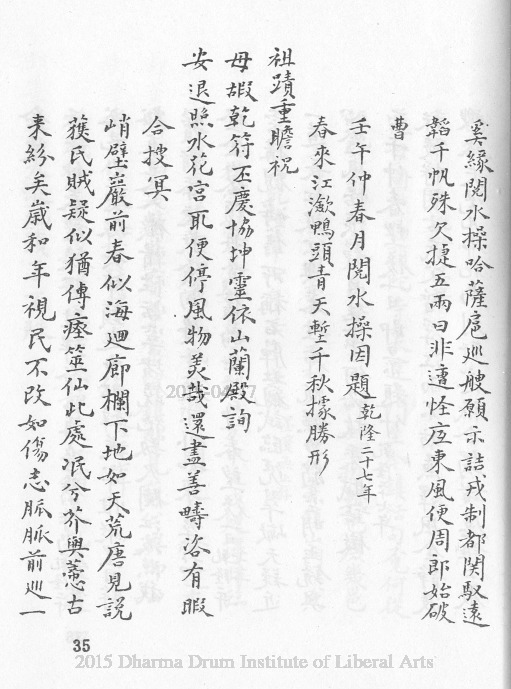 奚緣閱水操哈薩扈巡艘願示詰戎制都関馭遠
韜千帆殊欠捷五兩曰非遭怪底東風便周郎始破
曹
壬午仲春月閱水操因題 乾隆二十七年
春來江瀲鴨頭青天塹千秋據勝形
祖蹟重瞻祝
母嘏乾符丕慶協坤靈依山蘭殿詢
安退照水花宮取便停風物美哉還盡善疇咨有暇
合搜冥
峭壁巖前春似海迴廊欄下地如天荒唐見説
氏賊疑似猶傅瘞筮仙此處泯兮芥與薏古
来紛矣歲和年視民不改如傷志脈脈前巡一
35
2015 Dharma Drum Institute of Liberal Arts